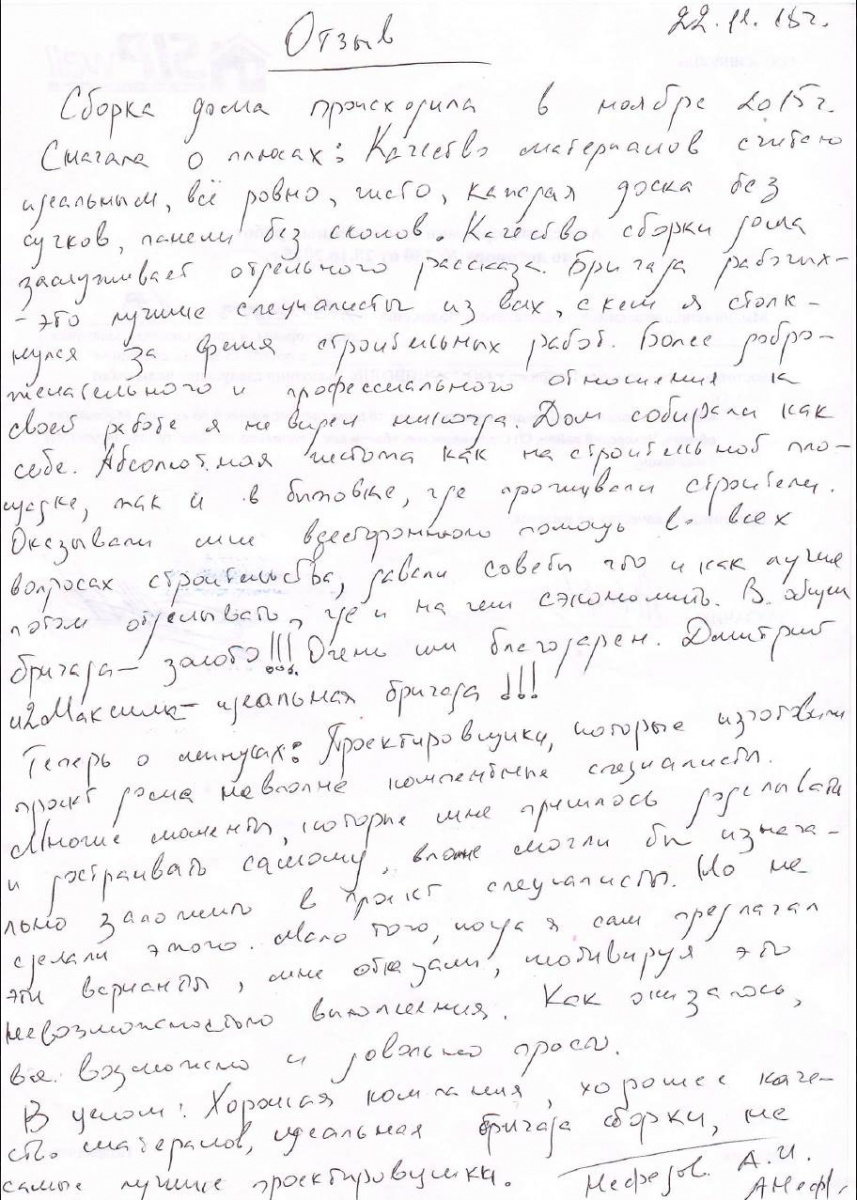 22.11.15г.
Отзыв
Сборка дома происходила в ноябре 2015г.
Сначала о плюсах: Качество материалов считаю
идеальным, всё ровно, чисто, каждая доска без
сучков, панели без сколов. Качество сборки дома
заслуживает отдельного рассказа. Бригада рабочих-
- это лучшие специалисты из всех, с кем я столк-
нулся за время строительных работ. Более добро-
желательного и профессиального отношения к
своей работе я не видел никогда. Дом собирали как
себе. Абсолютная чистота как на строительной пло-
щадке, так и в бытовке, где проживали строители.
Оказывали мне всестороннюю помощь во всех
вопросах строительства, давали советы что и как лучше
потом отделывать, где и на чем сэкономить. В общем
бригада - золото!!! Очень им благодарен. Дмитрий
и 2 Максима - идеальная бригада!!!
Теперь о минусах: Проектировщики, которые изготовили
проект дома не вполне компетентные специалисты.
Многие моменты, которые мне пришлось доделывать
и достраивать самому, вполне могли бы изнача-
льно заложить в проект специалисты. Но не
сделали этого. Мало того, когда я сам предлагал
эти варианты, мне отказали, мотивируя это
невозможностью выполнения. Как оказалось,
все возможно и довольно просто.
В целом: Хорошая компания, хорошее каче-
ство материалов, идеальная бригада сборки, не
самые лучшие проектировщики. Нефедов А.И.